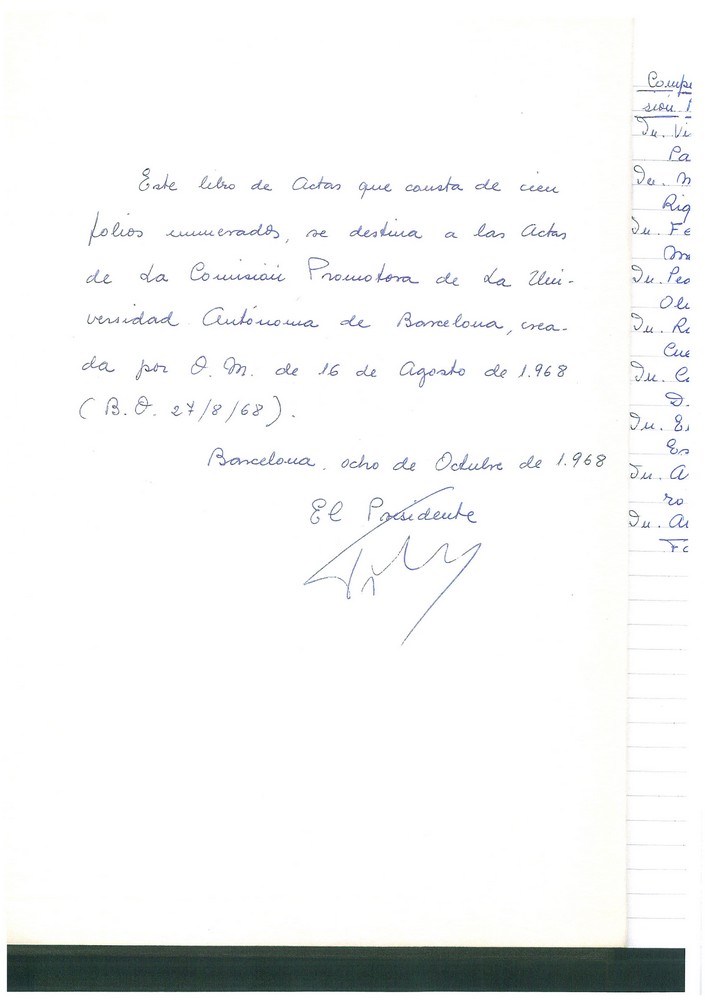 Este libro de Actas que consta de cien
folios enumerados, se destina a las Actas
de la Comisión Promotora de la Uni-
versidad Autónoma de Barcelona, crea-
da por O. M. de 16 de Agosto de 1.968
(B.O. 27/8/68).
Barcelona, ocho de Octubre de 1.968
El Presidente
Comp
sión
Dr. Vi
Pa
Dr. M
Rig
Dr. Fe
Dr. Peo
Ole
Dr. Re
Cue
Dr. C
D.
Dr. E
Es
Dr. A
ro
Dr. Ar